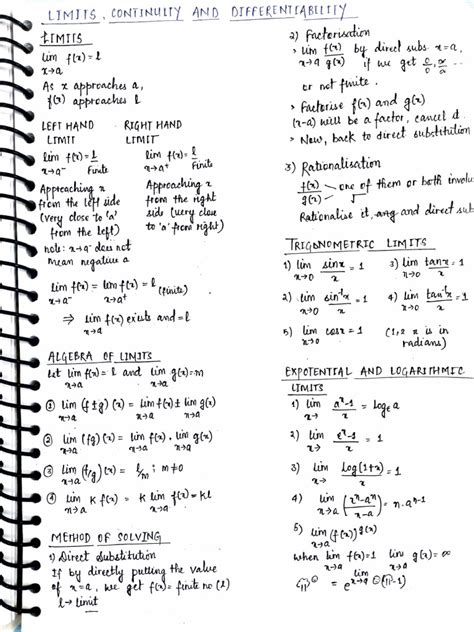 LIMITS, CONTINUITY AND DIFFERENTIABILITY
LIMITS
lim f(x) = l
x→a
As x approaches a,
f(x) approaches l
LEFT HAND LIMIT
lim f(x) = l
x→a⁻ Finite
Approaching x
from the left side
(very close to 'a'
from the left)
note: x→a⁻ does not
mean negative a
RIGHT HAND LIMIT
lim f(x) = l
x→a⁺ Finite
Approaching x
from the right
side (very close
to 'a' from right)
lim f(x) = lim f(x) = l (finite)
x→a⁻ x→a⁺
⇒ lim f(x) exists and = l
x→a
ALGEBRA OF LIMITS
Let lim f(x) = l and lim g(x) = m
x→a x→a
① lim (f ± g)(x) = lim f(x) ± lim g(x)
x→a x→a x→a
② lim (fg)(x) = lim f(x) . lim g(x)
x→a x→a x→a
③ lim (f/g)(x) = l/m ; m ≠ 0
x→a
④ lim K f(x) = K lim f(x) = Kl
x→a x→a
METHOD OF SOLVING
1) Direct Substitution
If by directly putting the value
of x = a, we get f(x) = finite no (l)
l → limit
2) Factorisation
> lim f(x)/g(x) by direct subs. x = a,
x→a if we get 0/0, ∞/∞
or not finite.
> Factorise f(x) and g(x)
(x-a) will be a factor, cancel it.
> Now, back to direct substitution
3) Rationalisation
f(x)/g(x) → one of them or both involve
Rationalise it, and direct sub
TRIGONOMETRIC LIMITS
1) lim sinx/x = 1
x→0
2) lim sin⁻¹x/x = 1
x→0
3) lim tanx/x = 1
x→0
4) lim tan⁻¹x/x = 1
x→0
5) lim cosx = 1
x→0
(1,2 x is in
radians)
EXPOTENTIAL AND LOGARITHMIC
LIMITS
1) lim aˣ-1/x = logₑa
x→
2) lim eˣ-1/x = 1
x→
3) lim log(1+x)/x = 1
x→
4) lim (xⁿ-aⁿ/x-a) = n.aⁿ⁻¹
x→a
5) lim (f(x))^g(x)
x→a
when lim f(x) = 1 lim g(x) = ∞
x→a x→a